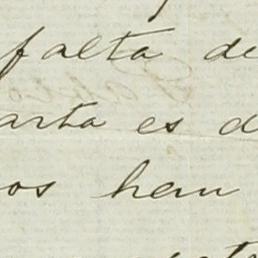 falta de
arta es d
os han